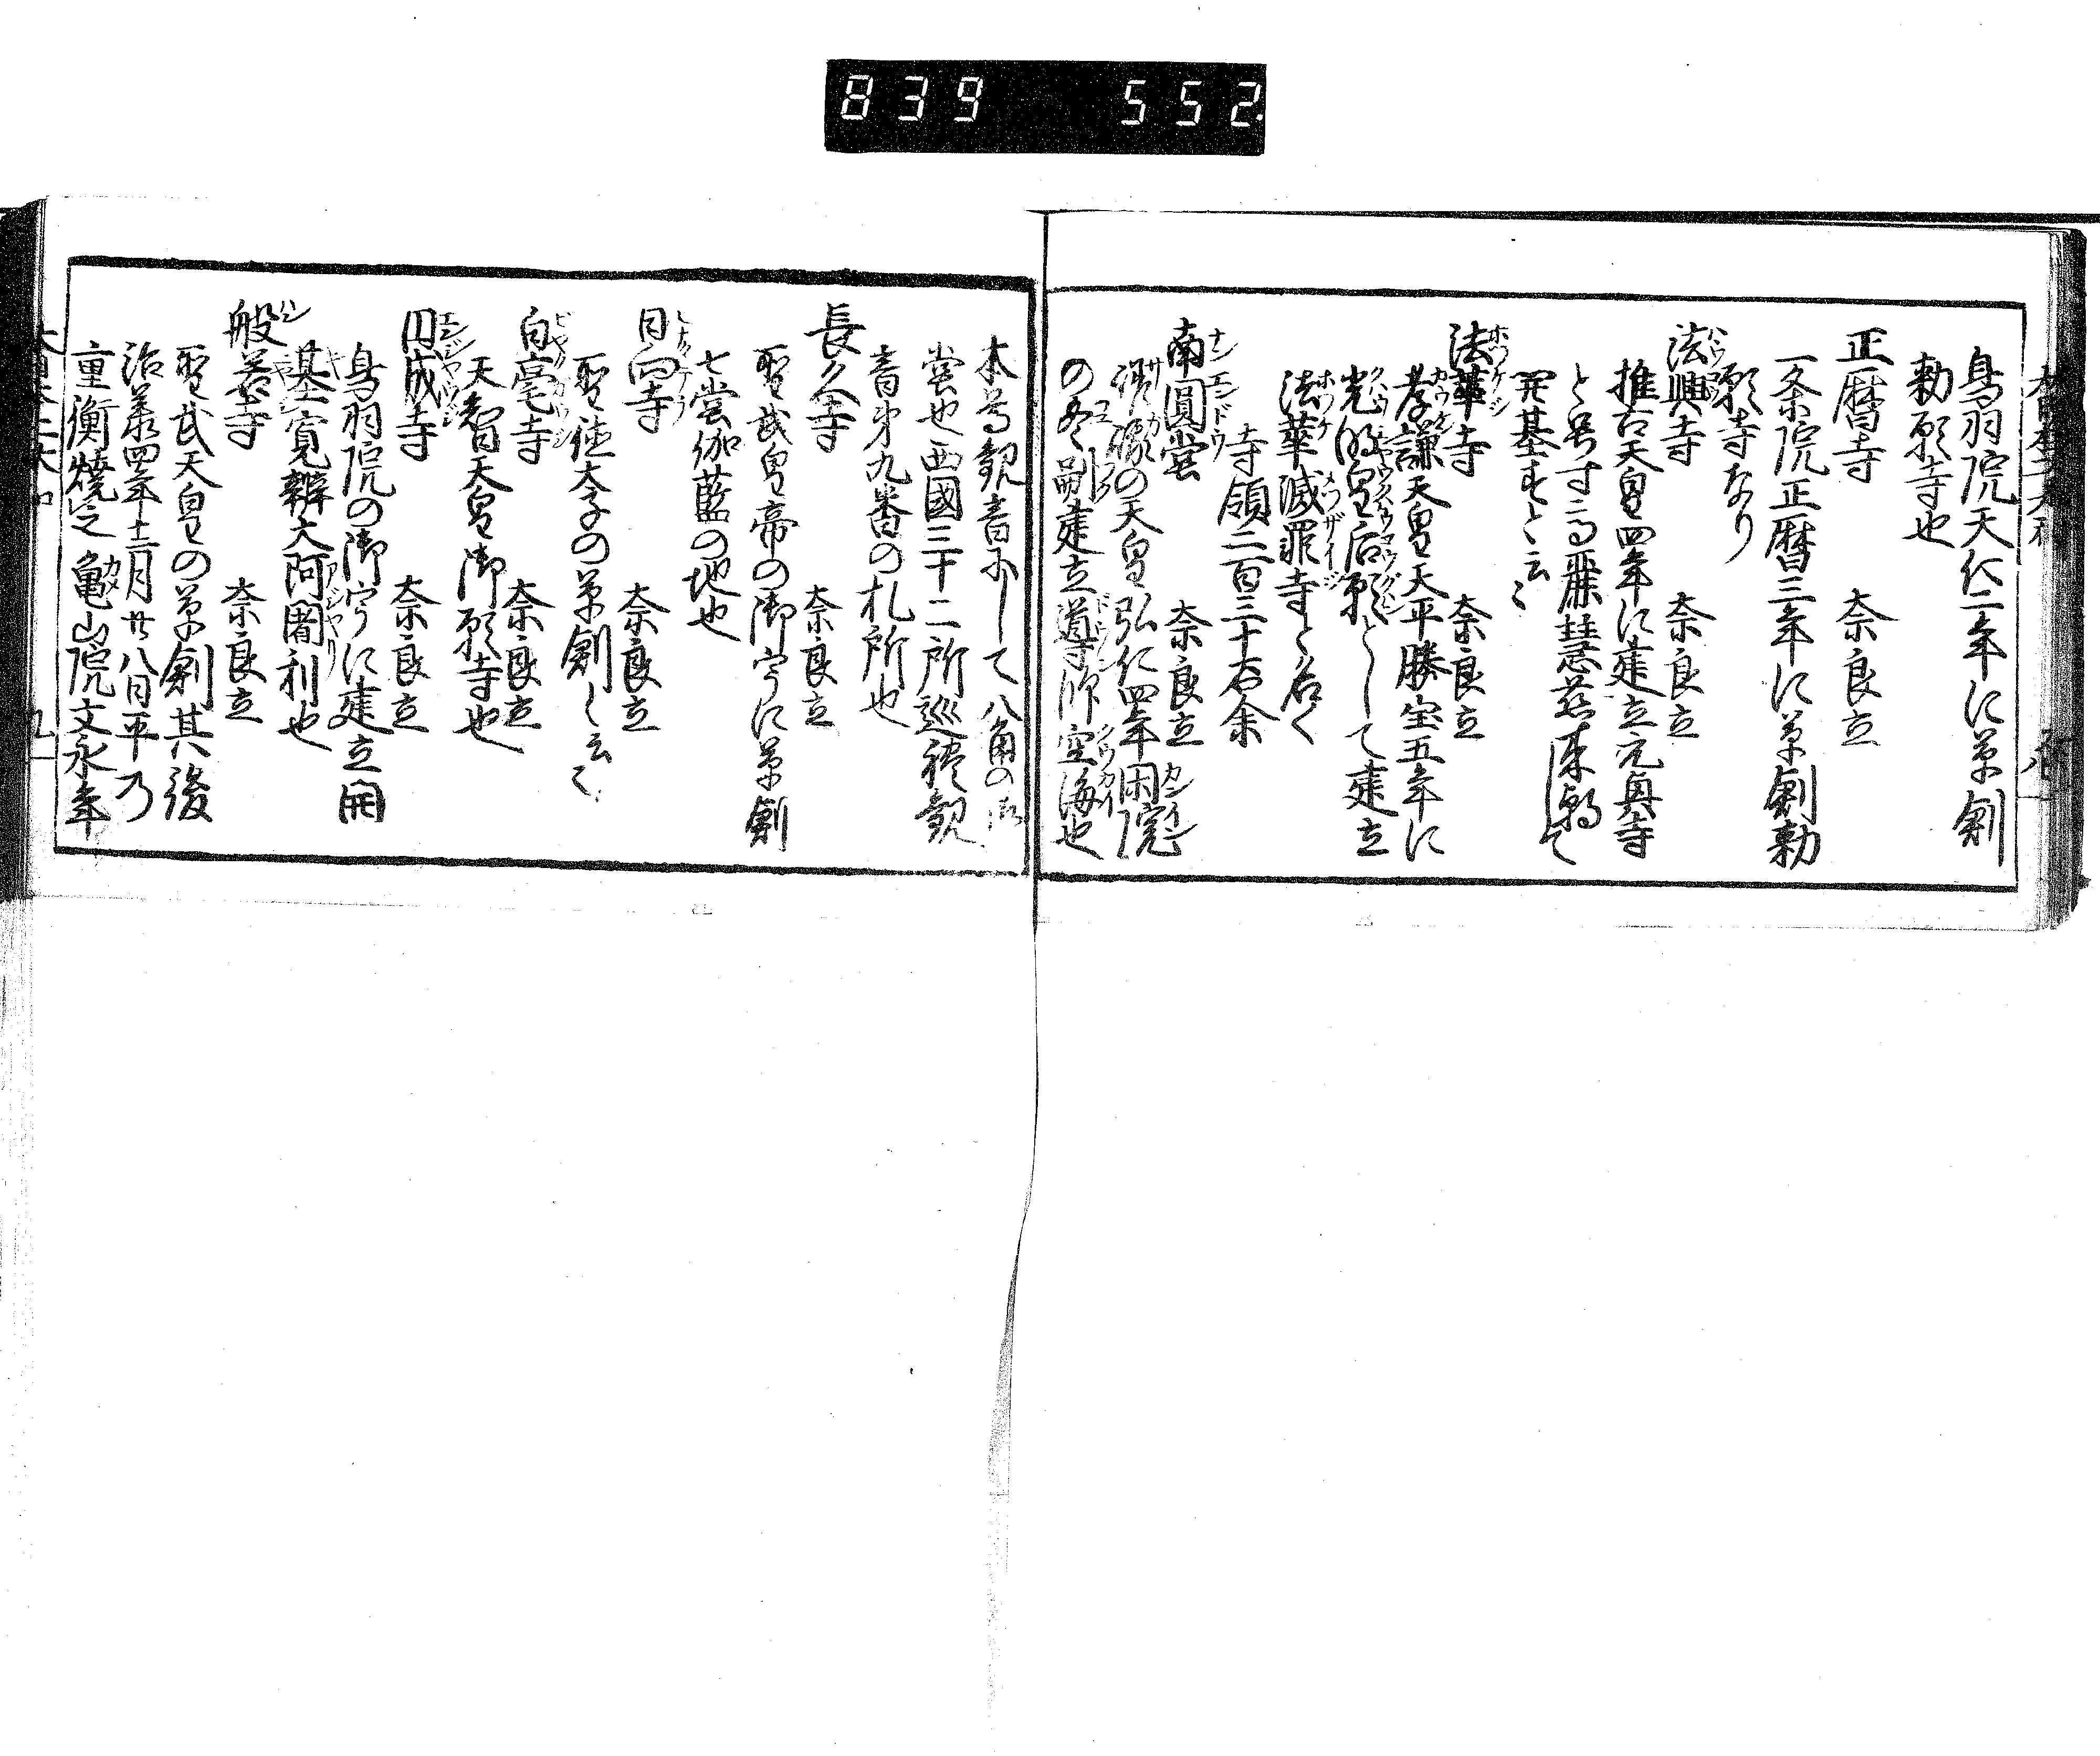 839 552
鳥羽院天仁二年に草創
勅願寺也
正暦寺 奈良立
一条院正暦三年に草創勅
願寺なり
法興寺 奈良立
推古天皇四年に建立元興寺
と号す高麗慧慈来朝して
開基すと云々
法華寺 奈良立
孝謙天皇天平勝宝五年に
光明皇后願として建立
法華滅罪寺と名く
寺領二百三十石余
南圓堂 奈良立
嵯峨の天皇弘仁四年閑院
の冬嗣建立導師空海也
本尊観音にして八角の
堂也西國三十三所巡礼観
音第九番の札所也
長久寺 奈良立
聖武皇帝の御宇に草創
七堂伽藍の地也
日向寺 奈良立
聖徳太子の草創と云々
白毫寺 奈良立
天智天皇御願寺也
円成寺 奈良立
鳥羽院の御宇に建立開
基寛辨大阿闍利也
般若寺 奈良立
聖武天皇の草創其後
治承四年十二月廿八日平乃
重衡焼之亀山院文永年